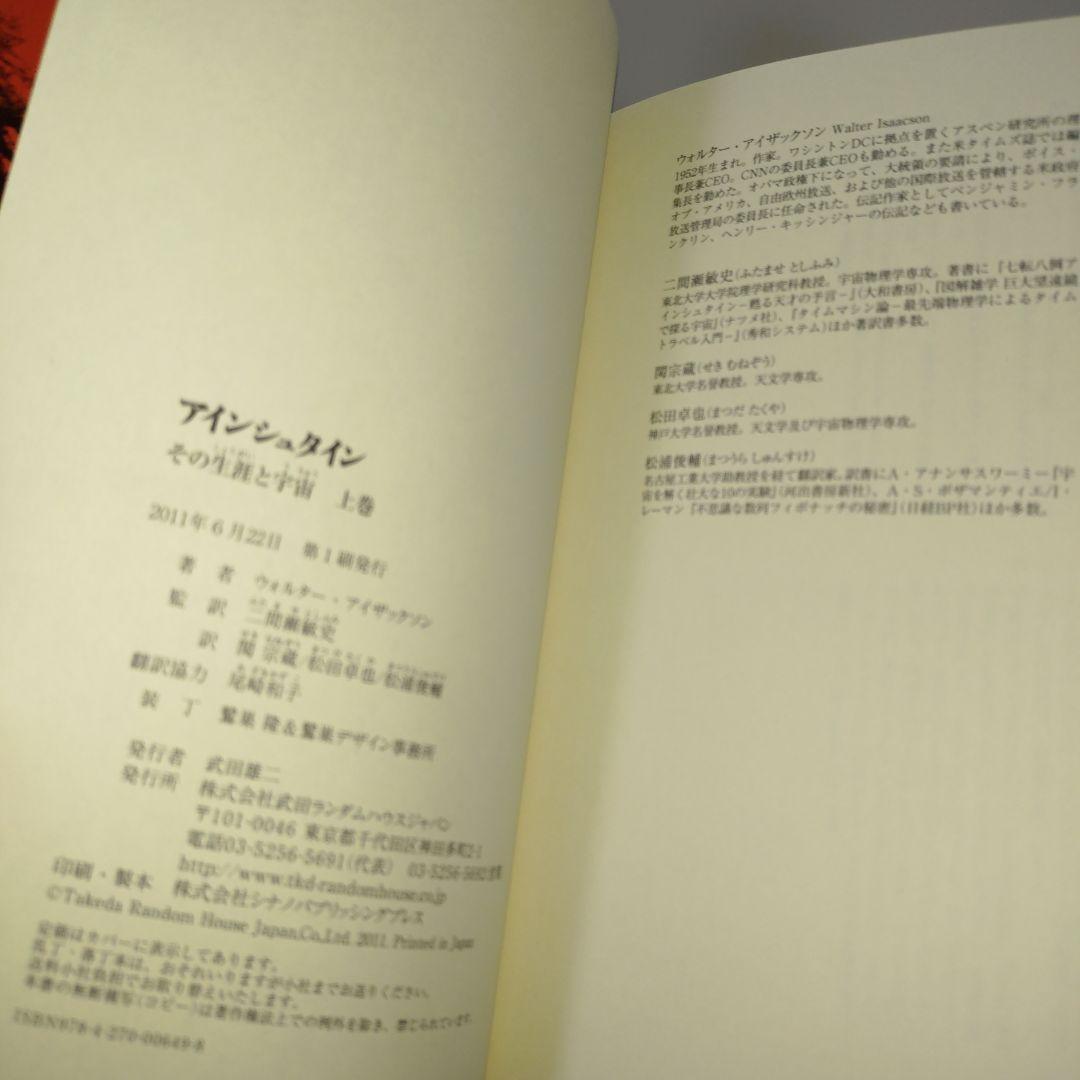 アインシュタイン
その生涯と宇宙 上巻
2011年6月22日 第1刷発行
著者 ウォルター・アイザックソン
監訳 二間瀬敏史
訳 関 宗蔵/松田卓也/松浦俊輔
翻訳協力 尾崎和子
装丁 鷲巣 隆&鷲巣デザイン事務所
発行者 武田雄二
発行所 株式会社武田ランダムハウスジャパン
〒101-0046 東京都千代田区神田多町2-1
電話03-5256-5691(代表) 03-5256-5692
http://www.tkd-randomhouse.co.jp
印刷・製本 株式会社シナノパブリッシングプレス
©Takeda Random House Japan,Co.,Ltd. 2011. Printed in Japan
定価はカバーに表示してあります。
乱丁・落丁本は、おそれいりますが小社までお送りください。
送料小社負担でお取り替えいたします。
本書の無断複写(コピー)は著作権法上での例外を除き、禁じられています。
ISBN978-4-270-00649-8
ウォルター・アイザックソン Walter Isaacson
1952年生まれ。作家。ワシントンDCに拠点を置くアスペン研究所の理
事長兼CEO。CNNの委員長兼CEOも勤める。また米タイムズ誌では編
集長を勤めた。オバマ政権下になって、大統領の要請により、ボイス・
オブ・アメリカ、自由欧州放送、および他の国際放送を管轄する米政府
放送管理局の委員長に任命された。伝記作家としてベンジャミン・フラ
ンクリン、ヘンリー・キッシンジャーの伝記なども書いている。
二間瀬敏史(ふたませ としふみ)
東北大学大学院理学研究科教授。宇宙物理学専攻。著書に『七転八倒ア
インシュタイン－甦る天才の予言－』(大和書房)、『図解雑学 巨大望遠鏡
で探る宇宙』(ナツメ社)、『タイムマシン論－最先端物理学によるタイム
トラベル入門－』(秀和システム)ほか著訳書多数。
関宗蔵(せき むねぞう)
東北大学名誉教授。天文学専攻。
松田卓也(まつだ たくや)
神戸大学名誉教授。天文学及び宇宙物理学専攻。
松浦俊輔(まつうら しゅんすけ)
名古屋工業大学助教授を経て翻訳家。訳書にA・アナンサスワーミー『宇
宙を解く壮大な10の実験』(河出書房新社)、A・S・ポザマンティエ/I・
レーマン『不思議な数列フィボナッチの秘密』(日経BP社)ほか多数。